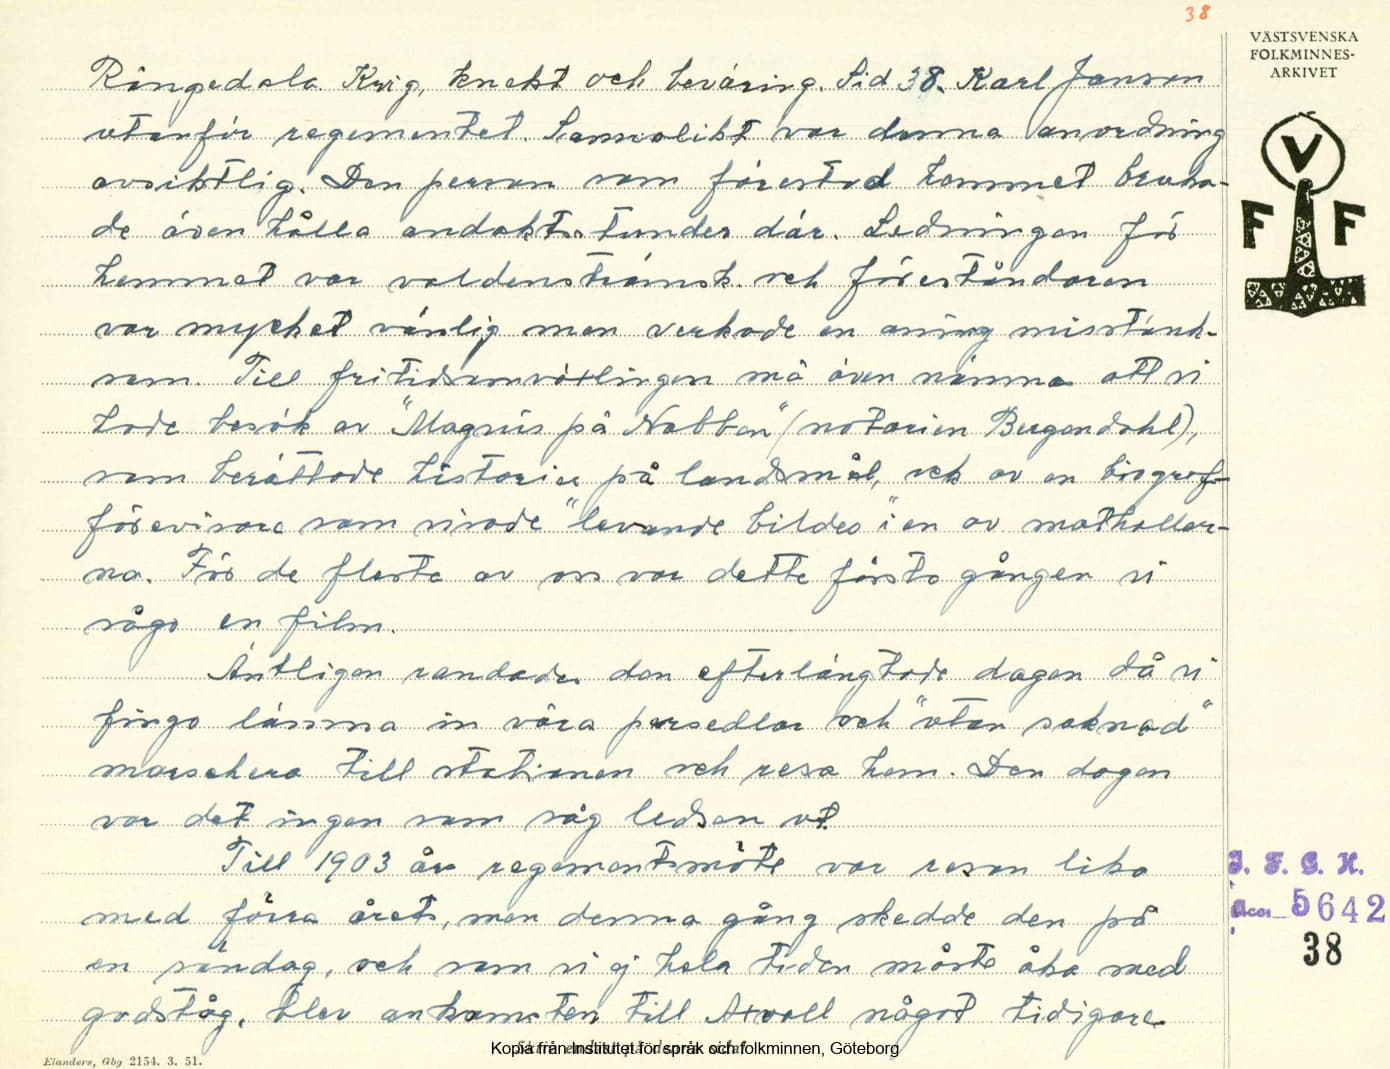 38
VÄSTSVENSKA
FOLKMINNES-
ARKIVET
V
F F
Rångedala Krig, knekt och beväring. Sid 38. Karl Janson
utanför regementet. Sannolikt var denna anordning
avsiktlig. Den person som förestod hemmet bruka-
de även hålla andaktsstunder där. Ledningen för
hemmet var valdenströmsk och föreståndaren
var mycket vänlig men verkade en aning misstänk-
sam. Till fritidsomväxlingen må även nämna att vi
hade besök av "Magnus på Nabben" (notarien Bergendahl),
som berättade historier på landsmål, och av en biograf-
förevisare som visade "levande bilder" i en av mathallar-
na. För de flesta av oss var detta första gången vi
sågo en film.
Äntligen randades den efterlängtade dagen då vi
fingo lämna in våra persedlar och "utan saknad"
marschera till stationen och resa hem. Den dagen
var det ingen som såg ledsen ut.
Till 1903 års regementsmöte var resan lika
med förra årets, men denna gång skedde den på
en söndag, och som vi ej hela tiden måste åka med
godståg, blev ankomsten till Axvall något tidigare
I. F. G. H.
Acc. 5642
38
Elanders, Gbg 2154. 3. 51.
Kopia från Institutet för språk och folkminnen, Göteborg